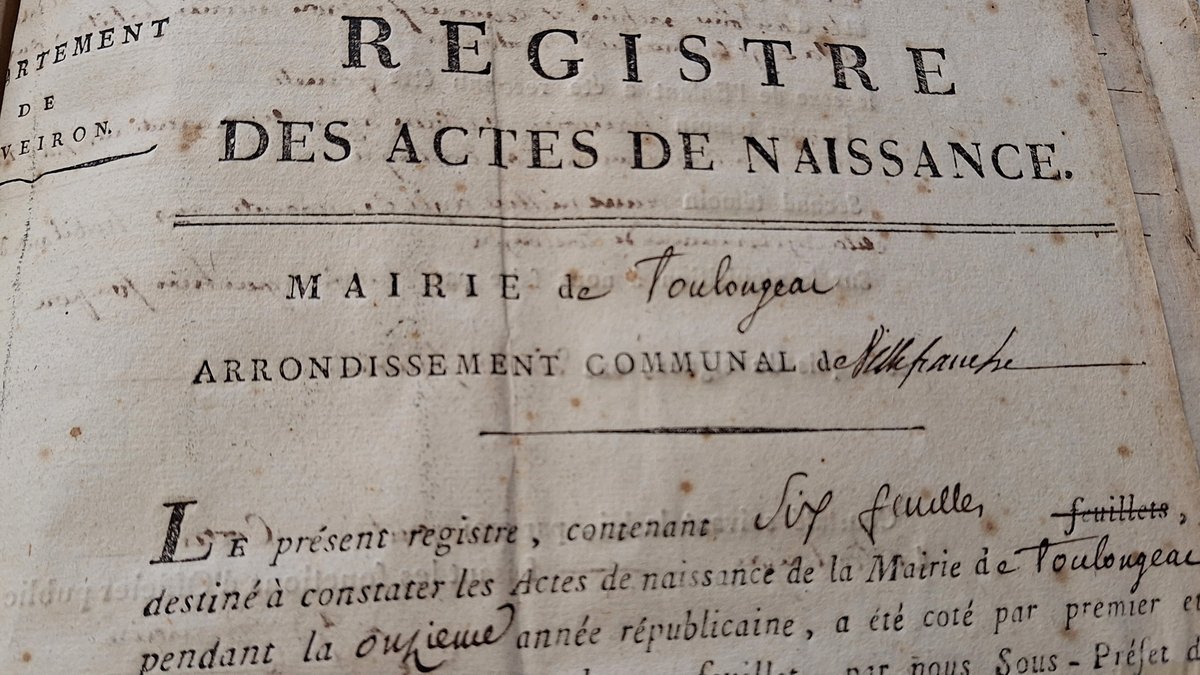 REGISTRE
DES ACTES DE NAISSANCE.
ORTEMENT
DE
VEIRON.
MAIRIE de Toulongeac
ARRONDISSEMENT COMMUNAL de Villefranche
LE présent registre, contenant Six feuilles feuillets,
destiné à constater les Actes de naissance de la Mairie de Toulongeac
pendant la onzieme année républicaine, a été coté par premier et
feuillet, par nous Sous-Préfet d